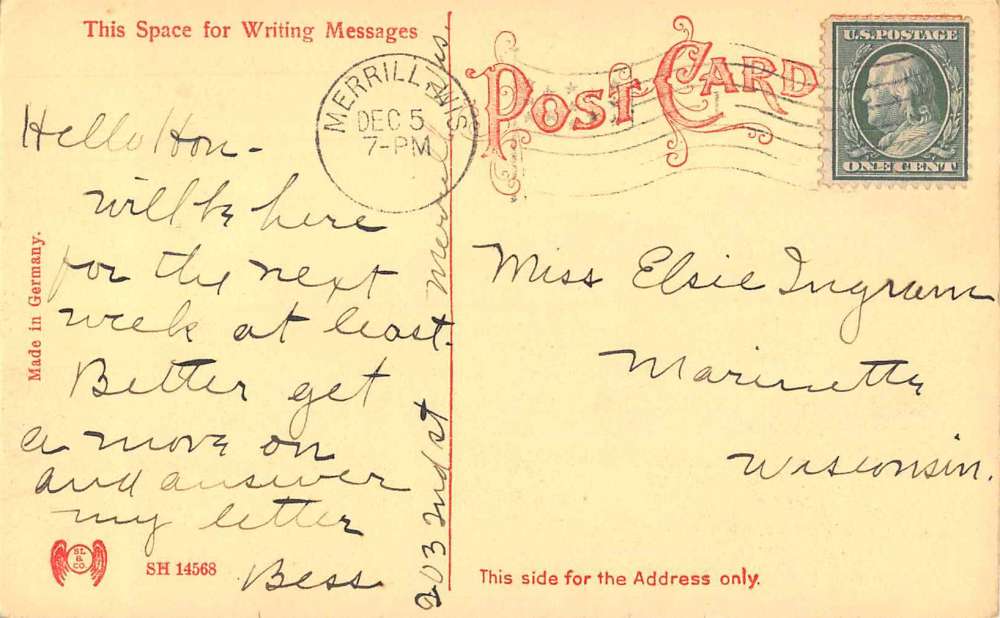 This Space for Writing Messages
POST CARD
MERRILL, WIS
DEC 5
7-PM
U.S. POSTAGE
ONE CENT
Hello Hon -
will be here
for the next
week at least.
Better get
a move on
and answer
my letter
Bess
203 2nd st Merrill Wis
Miss Elsie Ingram
Marinette
Wisconsin.
Made in Germany.
SL
&
CO.
SH 14568
This side for the Address only.